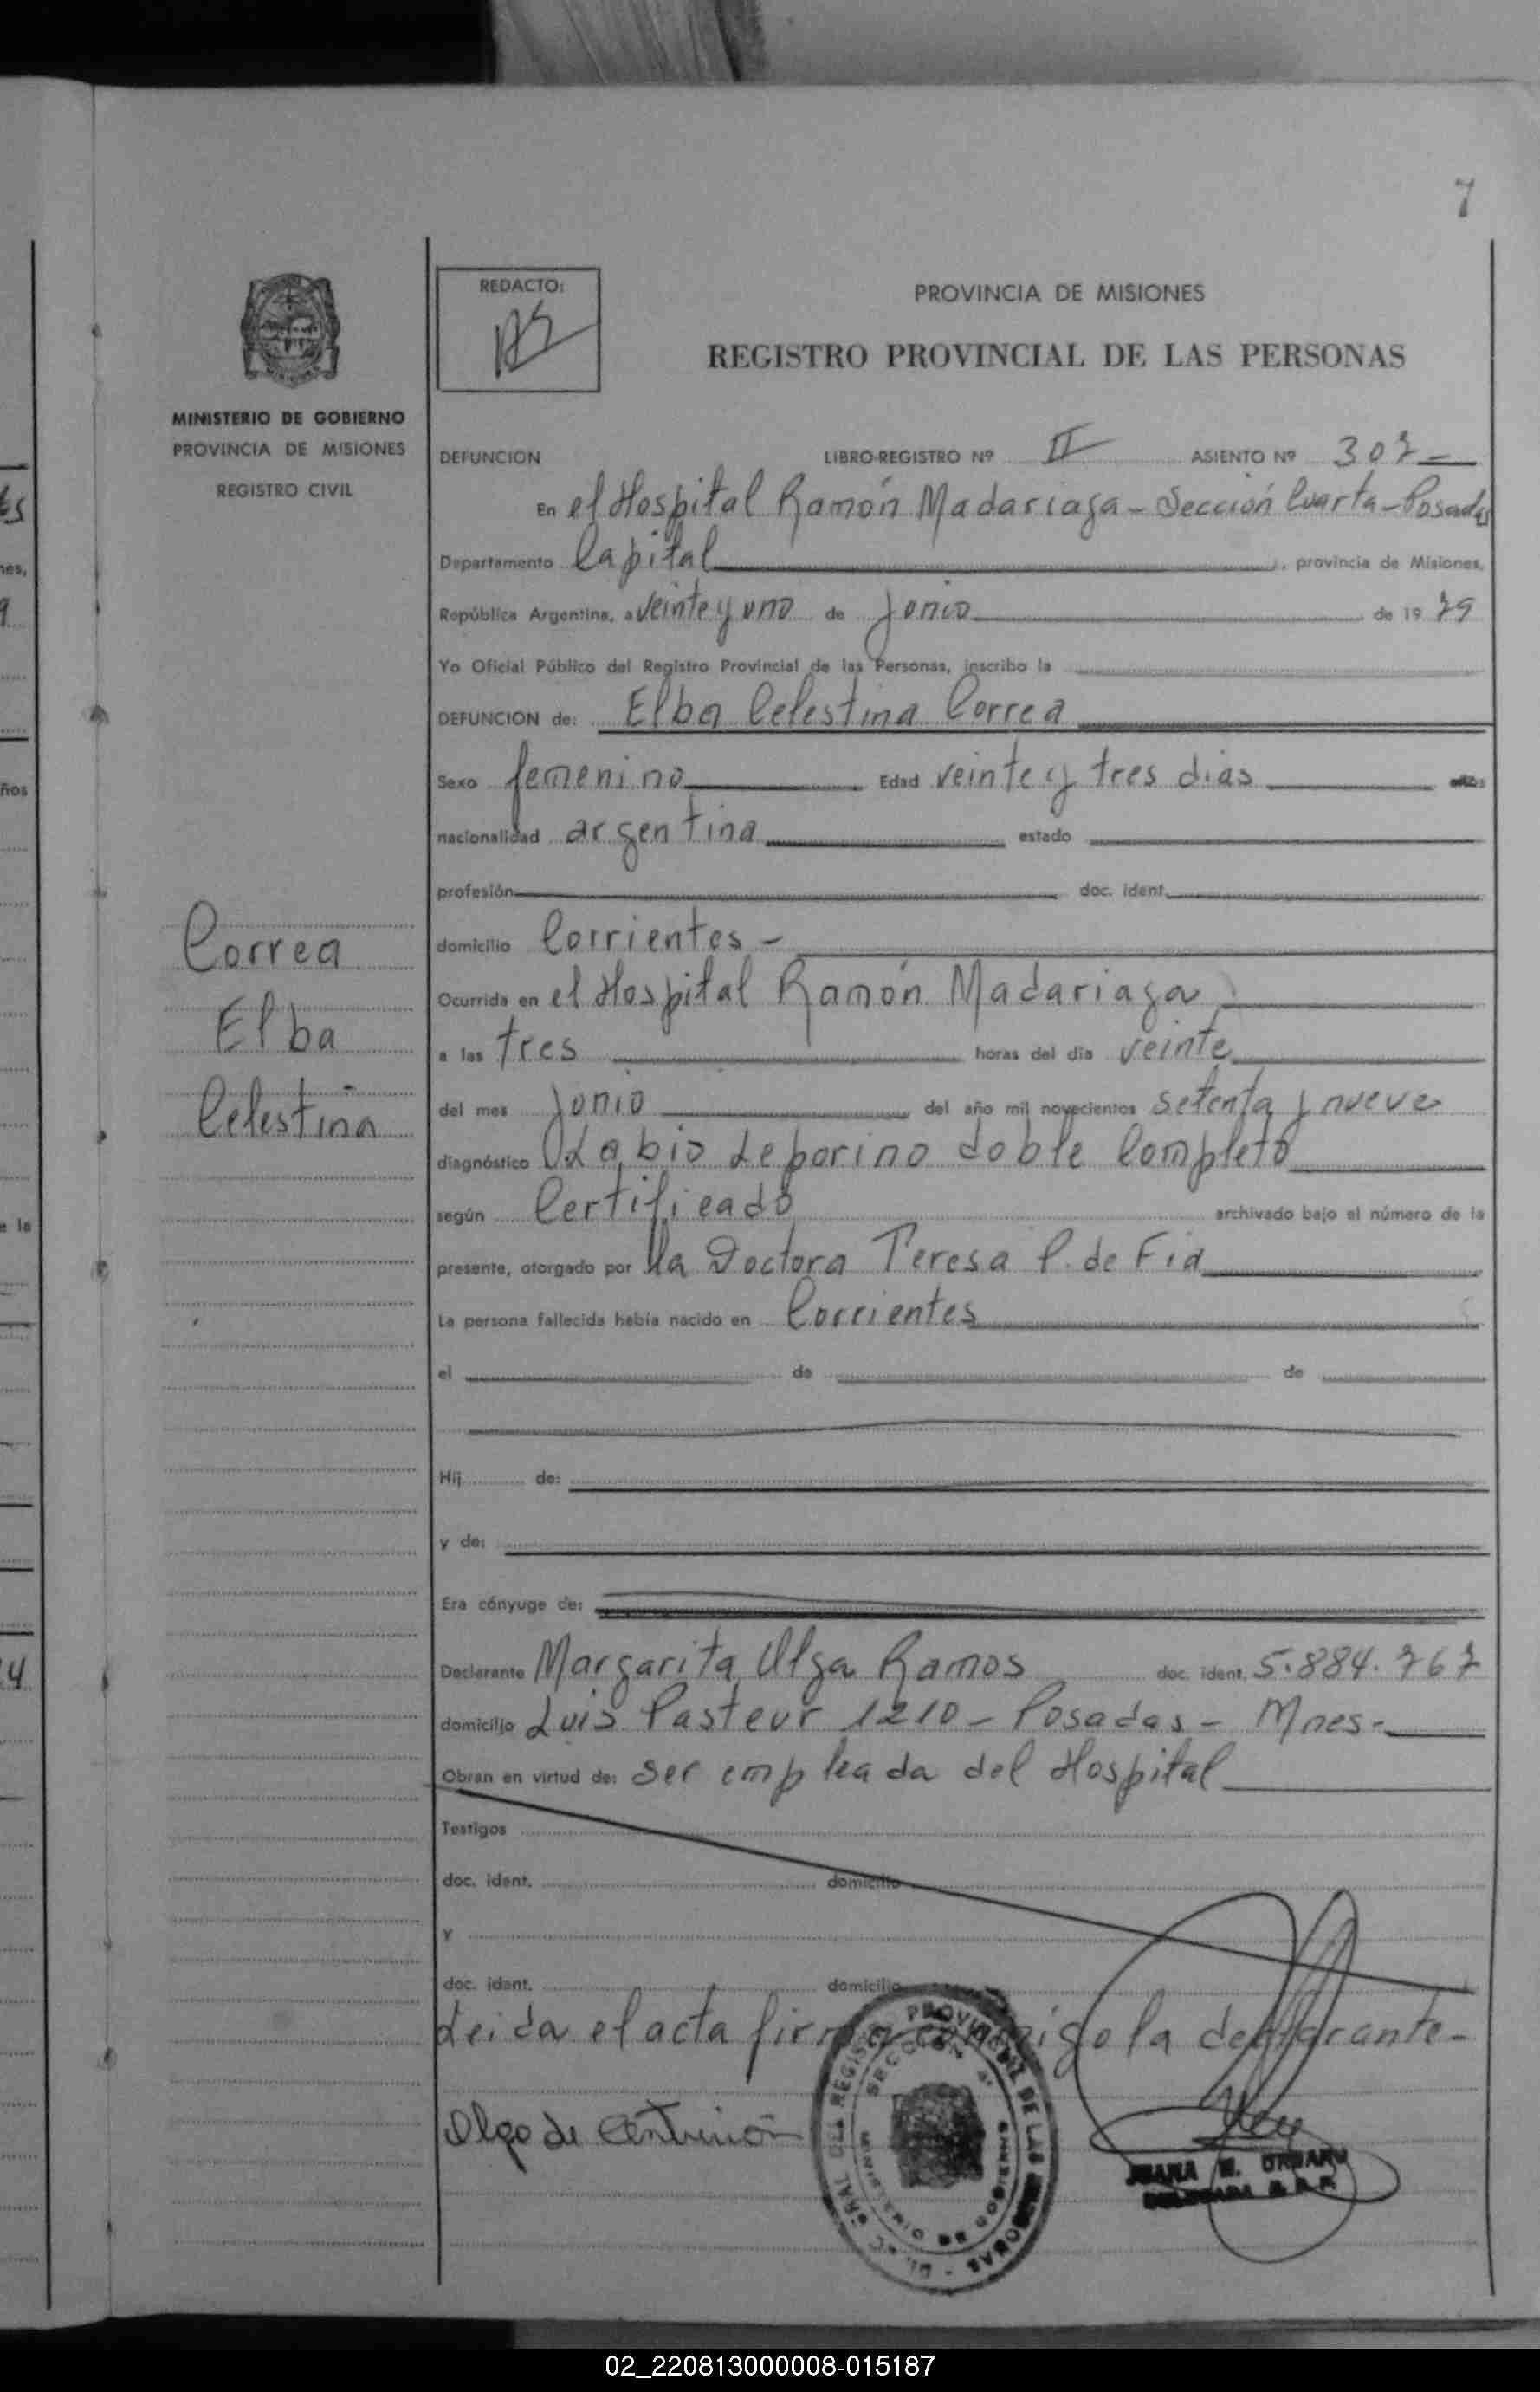 7
REDACTO:
PROVINCIA DE MISIONES
REGISTRO PROVINCIAL DE LAS PERSONAS
MINISTERIO DE GOBIERNO
PROVINCIA DE MISIONES
REGISTRO CIVIL
DEFUNCION LIBRO-REGISTRO Nº II ASIENTO Nº 307
En el Hospital Ramón Madariaga - Sección Cuarta - Posadas
Departamento Capital, provincia de Misiones,
República Argentina, a veinte y uno de Junio de 19 79
Yo Oficial Público del Registro Provincial de las Personas, inscribo la
DEFUNCION de: Elba Celestina Correa
Sexo femenino Edad veinte y tres dias
nacionalidad argentina estado
profesión doc. ident.
Correa
Elba
Celestina
domicilio Corrientes -
Ocurrida en el Hospital Ramón Madariaga
a las tres horas del día veinte
del mes Junio del año mil novecientos setenta y nueve
diagnóstico Labio Leporino doble Completo
según Certificado archivado bajo el número de la
presente, otorgado por la Doctora Teresa P. de Fia
La persona fallecida había nacido en Corrientes
el de de
Hij de:
y de:
Era cónyuge de:
Declarante Margarita Olga Ramos doc. ident. 5.884.767
domicilio Luis Pasteur 1210 - Posadas - Mnes -
Obran en virtud de: ser empleada del Hospital
Testigos
doc. ident. domicilio
y
doc. ident. domicilio
Leida el acta firma conmigo la declarante -
Olga de Centurión
PROVINCIAL DE LAS PERSONAS
SECCION 4ª
MINISTERIO DE GOBIERNO
JUANA E. URBANO
DELEGADA R.P.P.
02_220813000008-015187